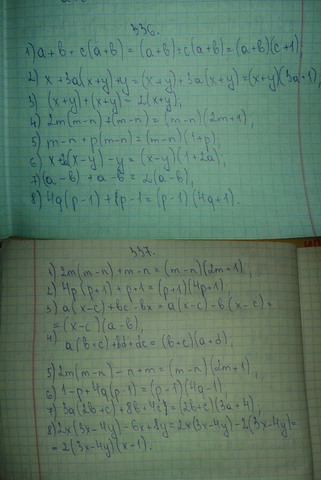 336.
1) a + b + c(a+b) = (a+b) + c(a+b) = (a+b)(c+1)
2) x + 3a(x+y) + y = (x+y) + 3a(x+y) = (x+y)(3a+1),
3) (x+y) + (x+y) = 2(x+y),
4) 2m(m-n) + (m-n) = (m-n)(2m+1),
5) m-n + p(m-n) = (m-n)(1+p),
6) x + 2a(x-y) - y = (x-y)(1+2a),
7) (a-b) + a-b = 2(a-b),
8) 4q(p-1) + p-1 = (p-1)(4q+1).
337.
1) 2m(m-n) + m-n = (m-n)(2m+1),
2) 4p(p+1) + p+1 = (p+1)(4p+1),
3) a(x-c) + bc - bx = a(x-c) - b(x-c) =
= (x-c)(a-b),
4) a(b+c) + bd + dc = (b+c)(a+d),
5) 2m(m-n) - n + m = (m-n)(2m+1),
6) 1-p + 4q(p-1) = (p-1)(4q-1),
7) 3a(2b+c) + 8b + 4c = (2b+c)(3a+4),
8) 2x(3x-4y) - 6x + 8y = 2x(3x-4y) - 2(3x-4y) =
= 2(3x-4y)(x-1).